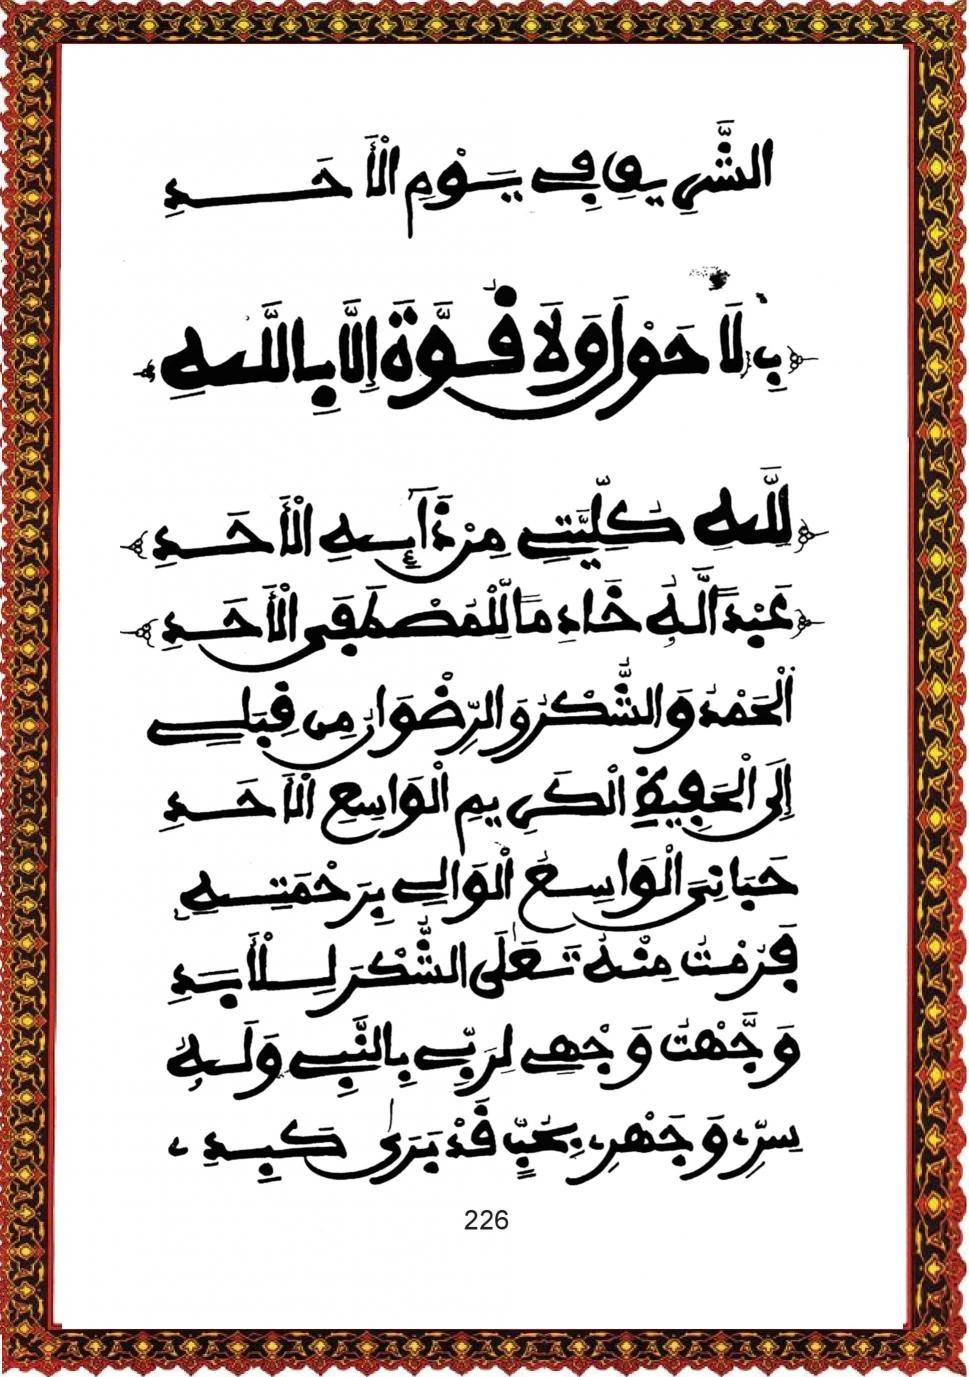 الشَّرِيفِ فِي يَوْمِ الْأَحَدِ
بِ لَا حَوْلَ وَلَا قُوَّةَ إِلَّا بِاللَّهِ
لِلَّهِ كُلِّيَّتِي مِنْ ذَا إِلَهِ الْأَحَدِ
عَبْدًا لَّهُ خَادِمًا لِلْمُصْطَفَى الْأَحَدِ
الْحَمْدُ وَالشُّكْرُ وَالرِّضْوَانُ مِن قِبَلِي
إِلَى الْحَفِيظِ الْكَرِيمِ الْوَاسِعِ الْأَحَدِ
حَبَانِيَ الْوَاسِعُ الْوَالِي بِرَحْمَتِهِ
فَرُمْتُ مِنْهُ تَعَلَى الشُّكْرَ لِلْأَبَدِ
وَجَّهْتُ وَجْهِي لِرَبِّي بِالنَّبِي وَلَهُ
سِرِّي وَجَهْرِي بِحُبٍّ قَدْ بَرَى كَبِدِي
226